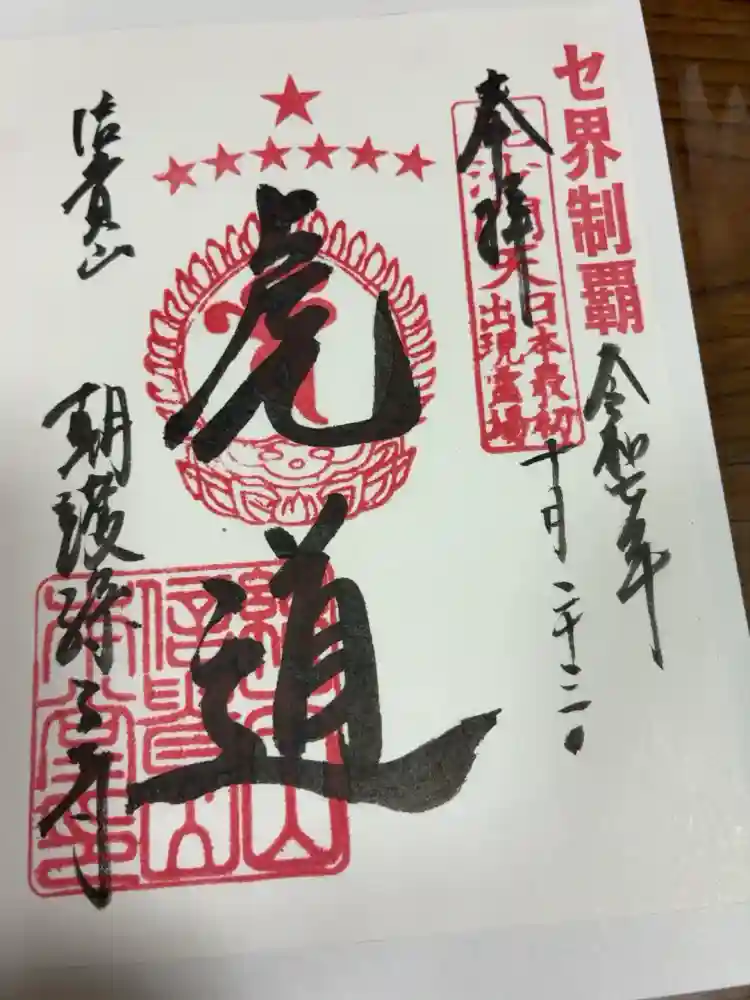 セ界制覇
令和七年
奉拝
毘沙門天
日本最初
出現霊場
十月二十二日
虎道
信貴山
朝護孫子寺
信貴山
本堂印